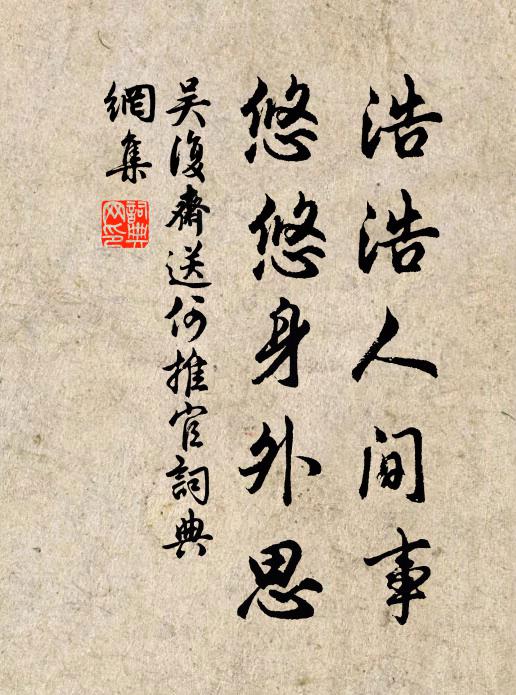 浩浩人間事
悠悠身外思
吳復齋送何推官詞典
網集
詞典網印